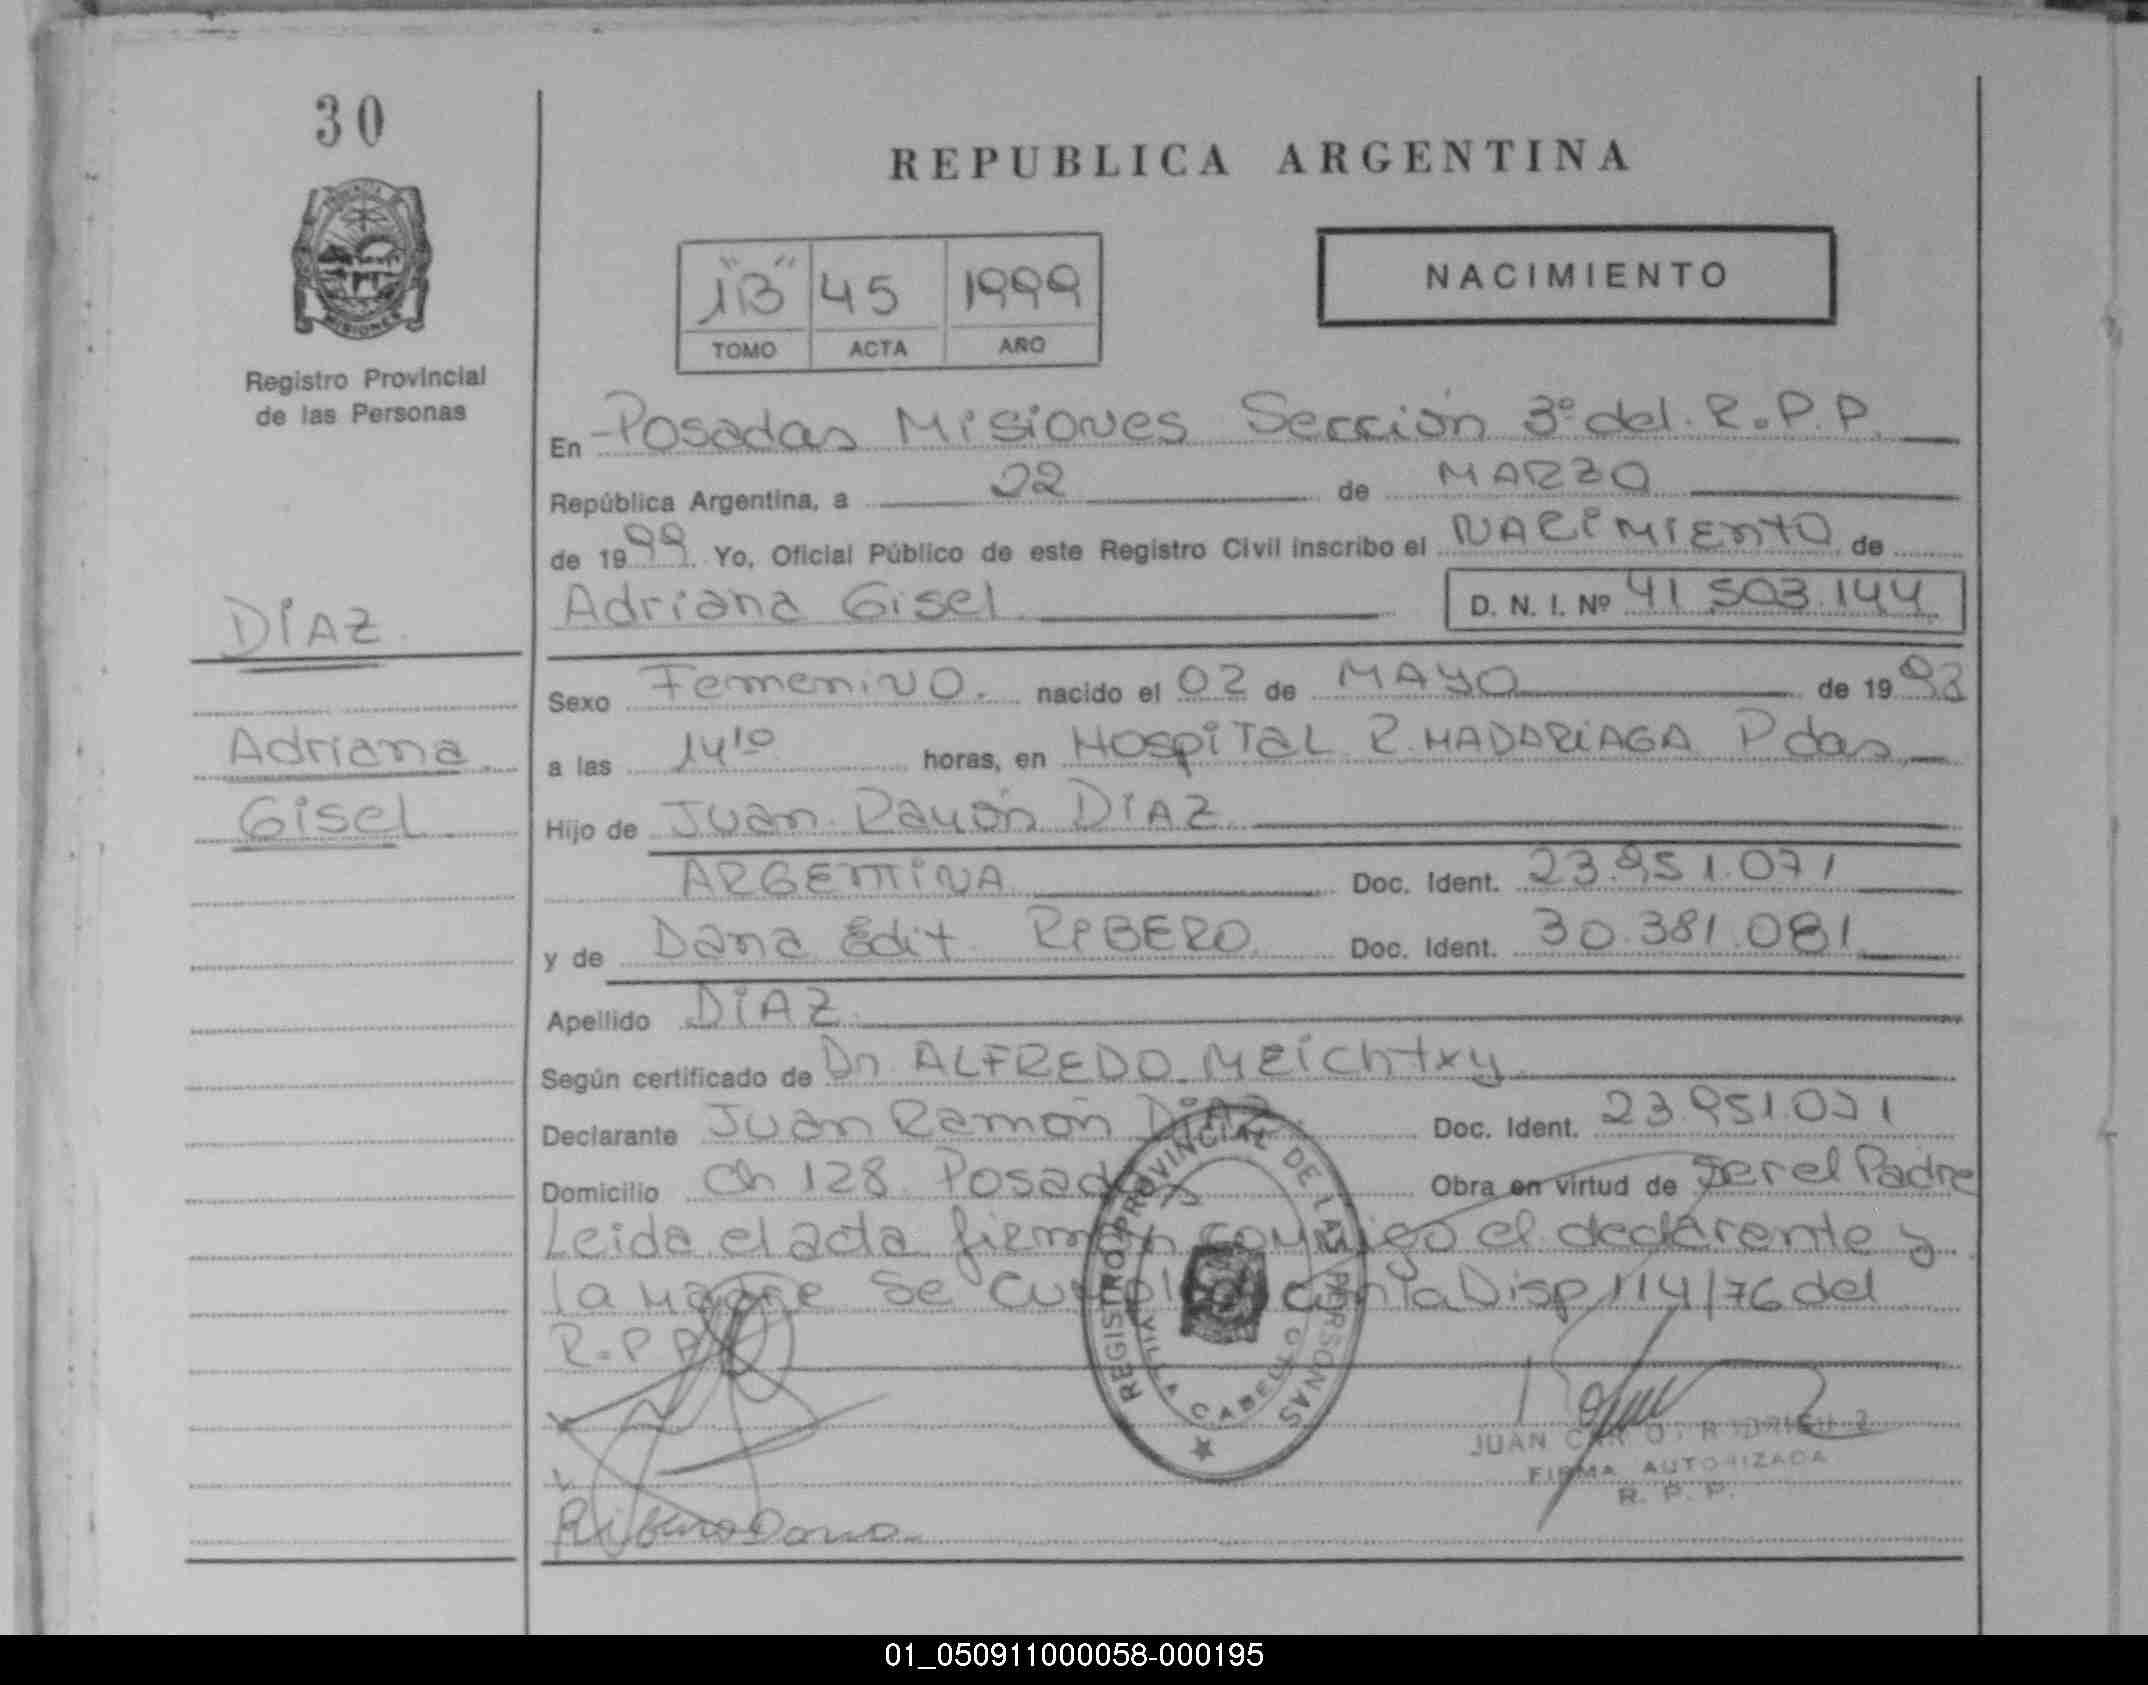 30
REPUBLICA ARGENTINA
"1B" 45 1999
TOMO ACTA AÑO
NACIMIENTO
MISIONES
Registro Provincial
de las Personas
En Posadas Misiones Sección 3º del R.P.P.
República Argentina, a 22 de MARZO
de 1999. Yo, Oficial Público de este Registro Civil inscribo el NACIMIENTO de
Adriana Gisel D. N. I. Nº 41 503.144
DIAZ
Adriana
Gisel
Sexo Femenino. nacido el 02 de MAYO de 1998
a las 14¹⁰ horas, en Hospital R. MADARIAGA Pdas
Hijo de Juan Ramón DIAZ
ARGENTINA Doc. Ident. 23.951.071
y de Dana Edit RIBERO Doc. Ident. 30.381.081
Apellido DIAZ
Según certificado de Dr. ALFREDO MEichtry
Declarante Juan Ramón DIAZ Doc. Ident. 23951071
Domicilio Ch 128 Posadas Obra en virtud de ser el Padre
Leida el acta firman conmigo el declarante y
la Madre Se cumplió con la Disp 114/76 del
R.P.P.
REGISTRO PROVINCIAL DE LAS PERSONAS
VILLA CABELLO
JUAN CARLOS RODRIGUEZ
FIRMA AUTORIZADA
R. P. P.
Ribero Dana
01_050911000058-000195